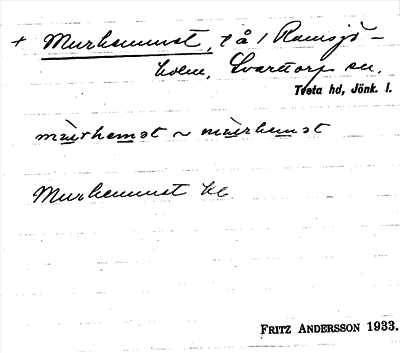 + Murhemmet, t å / Ramsjö-
holm, Svarttorp sn.
Tveta hd, Jönk. l.
Murhemmet Kb.
FRITZ ANDERSSON 1933.